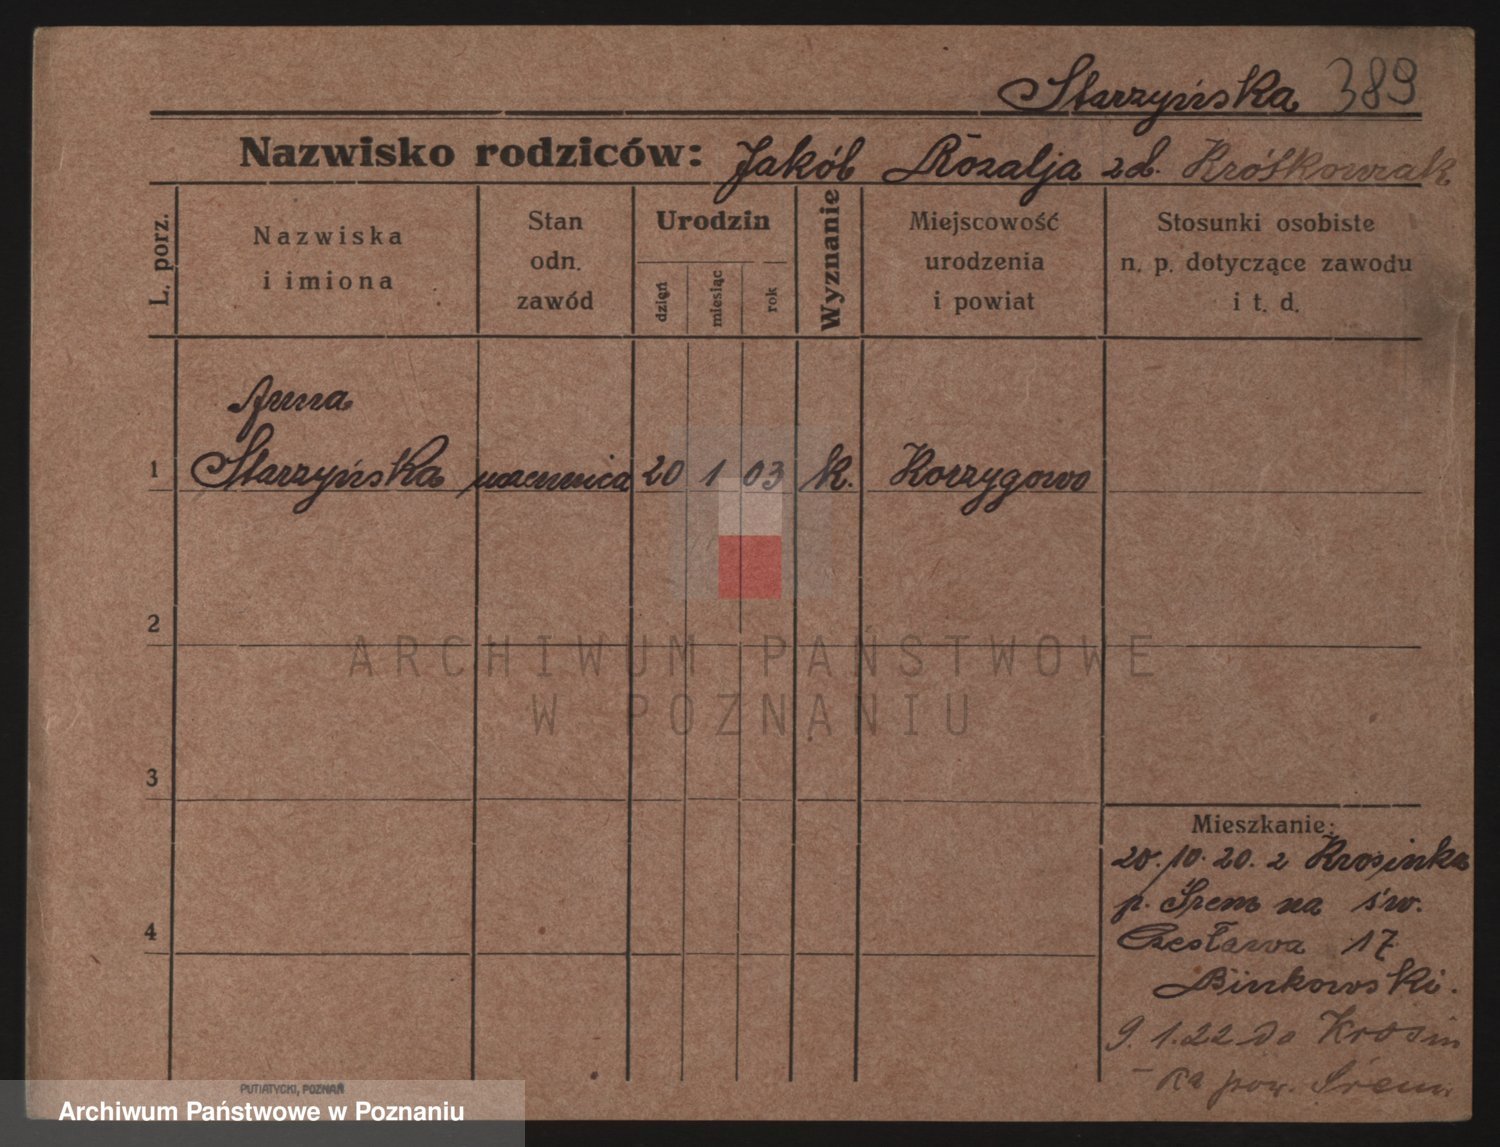 Starzyńska 389
Nazwisko rodziców: Jakób Rozalja zd. Krótkowiak
L. porz.
Nazwiska
i imiona
Stan
odn.
zawód
Urodzin
dzień
miesiąc
rok
Wyznanie
Miejscowość
urodzenia
i powiat
Stosunki osobiste
n. p. dotyczące zawodu
i t. d.
Anna
1 Starzyńska uczennica 20 1 03 k. Korzygowo
2
3
4
Mieszkanie:
20.10.20. z Krosinka
p. Śrem na św.
Czesława 17
Binkowski.
9.1.22 do Krosin
-ka pow. Śrem.
PUTIATYCKI, POZNAŃ
ARCHIWUM PAŃSTWOWE
W POZNANIU
Archiwum Państwowe w Poznaniu